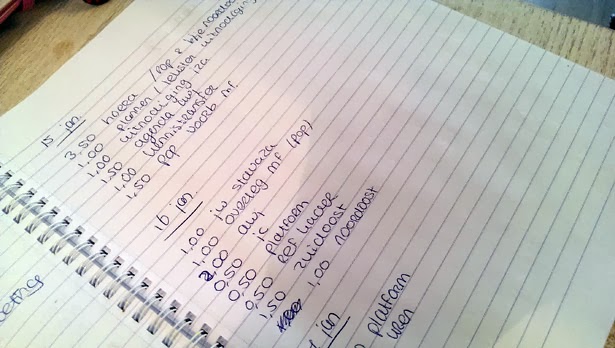 15 jan
3,50 hocca / POP & bhe noordoo
1,00 plannen / leusden uitnodiging
1,00 uitnodiging iza
1,50 agenda awj
1,00 kennistransfer
1,50 POP voorb mf
16 jan
1,00 jw stavaza
1,00 overleg mf (POP)
2,00 awj
0,50 ic
0,50 platform
0,50 ref hacker
1,50 zuidoost
1,00 noordoost
jan
platform
uren
eeting